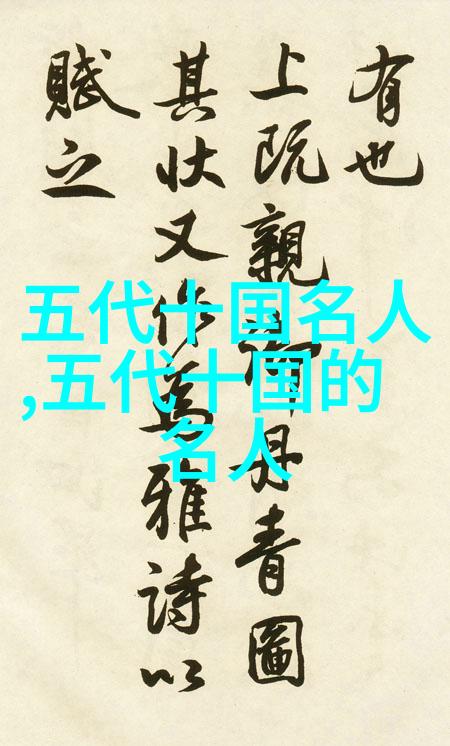 有也
上既親丹青圖
其状又作為雅詩以
賦之
五代十国名人
,五代十国的
名人